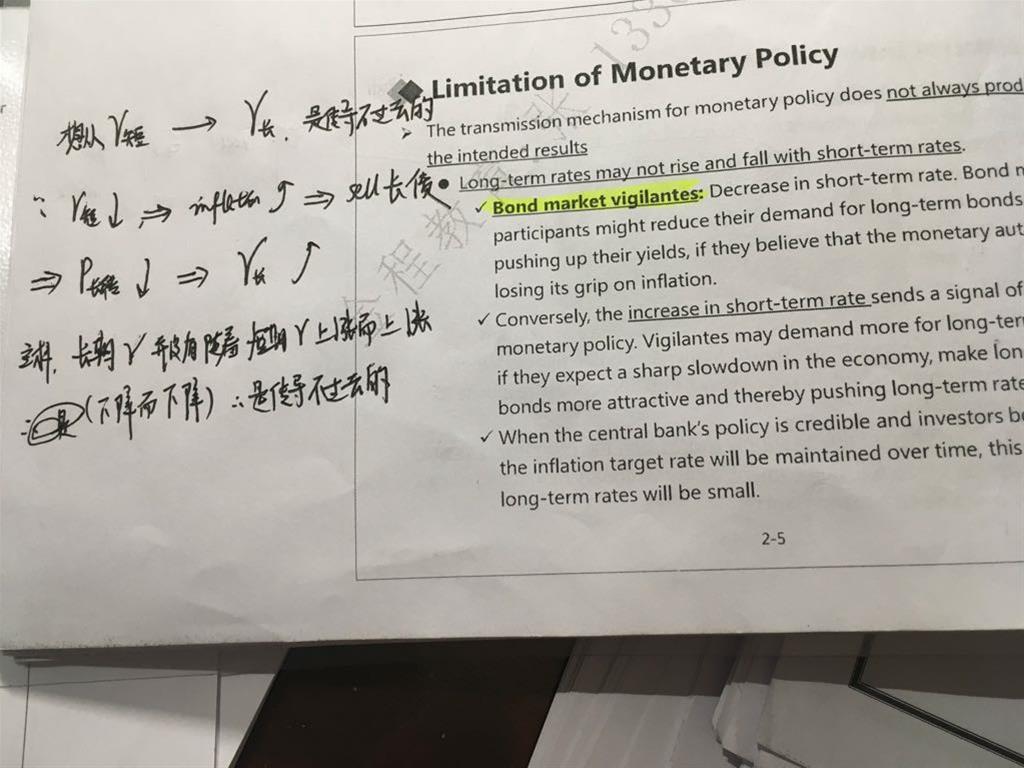 Limitation of Monetary Policy
The transmission mechanism for monetary policy does not always prod
the intended results
Long-term rates may not rise and fall with short-term rates.
✓ Bond market vigilantes: Decrease in short-term rate. Bond m
participants might reduce their demand for long-term bonds
pushing up their yields, if they believe that the monetary aut
losing its grip on inflation.
✓ Conversely, the increase in short-term rate sends a signal of
monetary policy. Vigilantes may demand more for long-ter
if they expect a sharp slowdown in the economy, make lon
bonds more attractive and thereby pushing long-term rate
✓ When the central bank's policy is credible and investors be
the inflation target rate will be maintained over time, this
long-term rates will be small.
2-5
想从 r短 → r长. 是传导不过去的
∵ r短↓ ⇒ inflation ↑ ⇒ sell 长债
⇒ P长债 ↓ ⇒ r长 ↑
长期 r 并没有随着短期 r 上涨而上涨
(下降而下降) ∴是传导不过去的
1338
程教